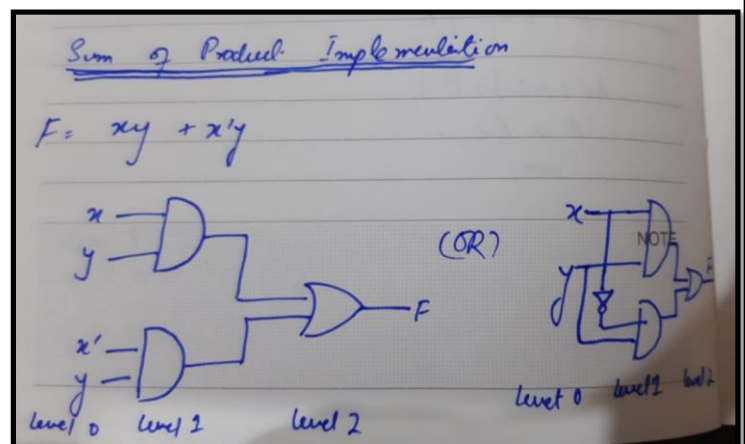 Sum of Product Implementation
F = xy + x'y
x
y
x'
y
F
(OR)
x
y
NOTE
F
Level 0 Level 1 Level 2
Level 0 Level 1 Level 2